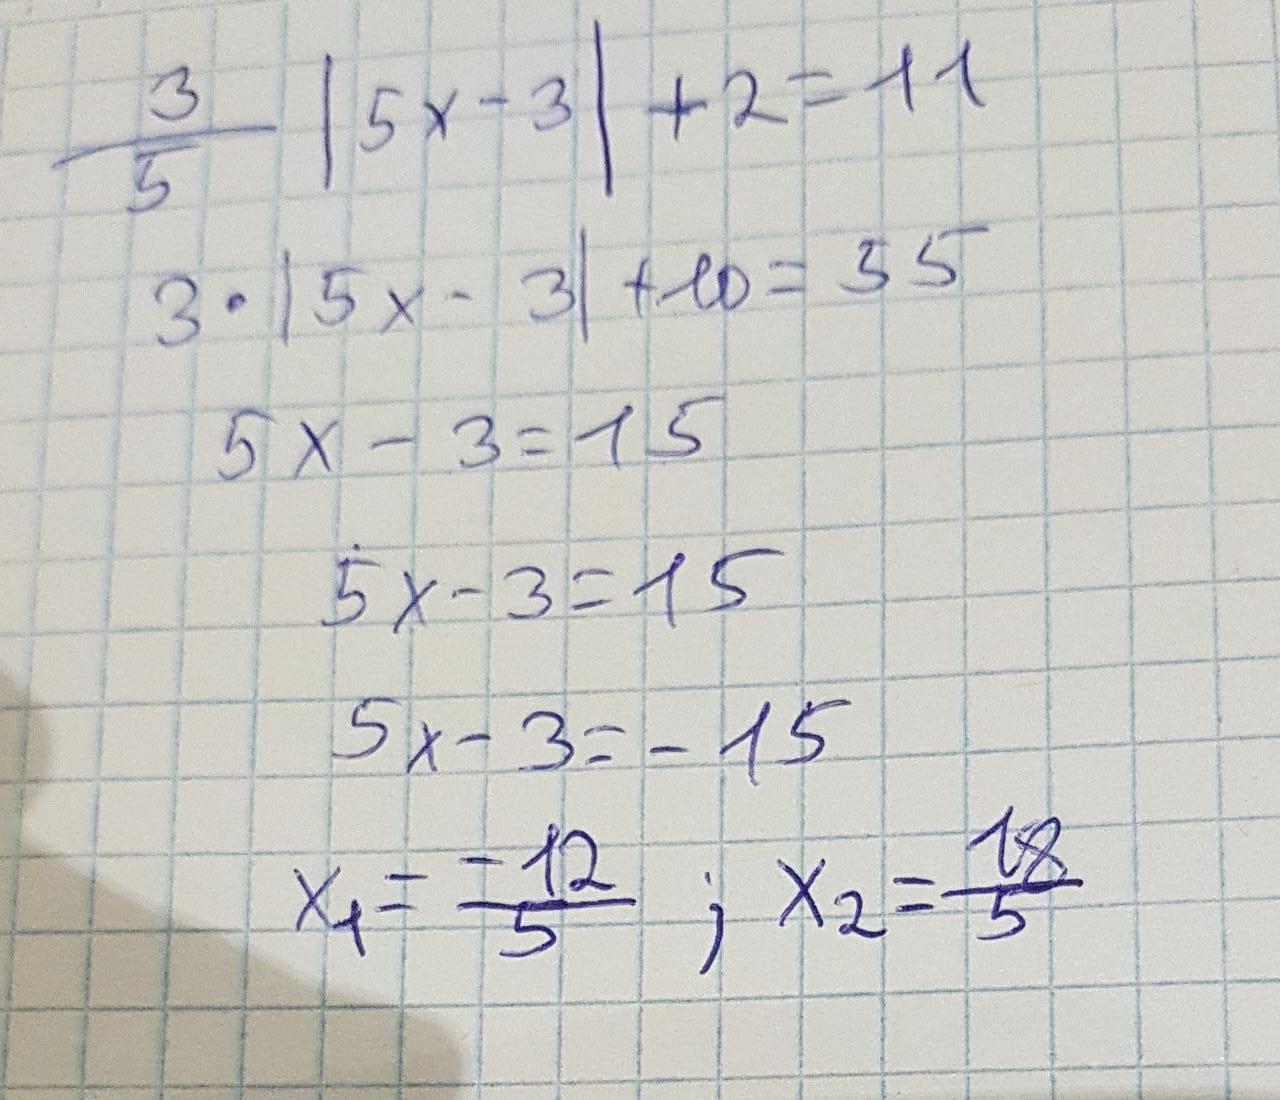 3/5 |5x-3| +2=11
3·|5x-3|+10=55
5x-3=15
5x-3=15
5x-3=-15
x₁=-12/5 ; x₂=18/5